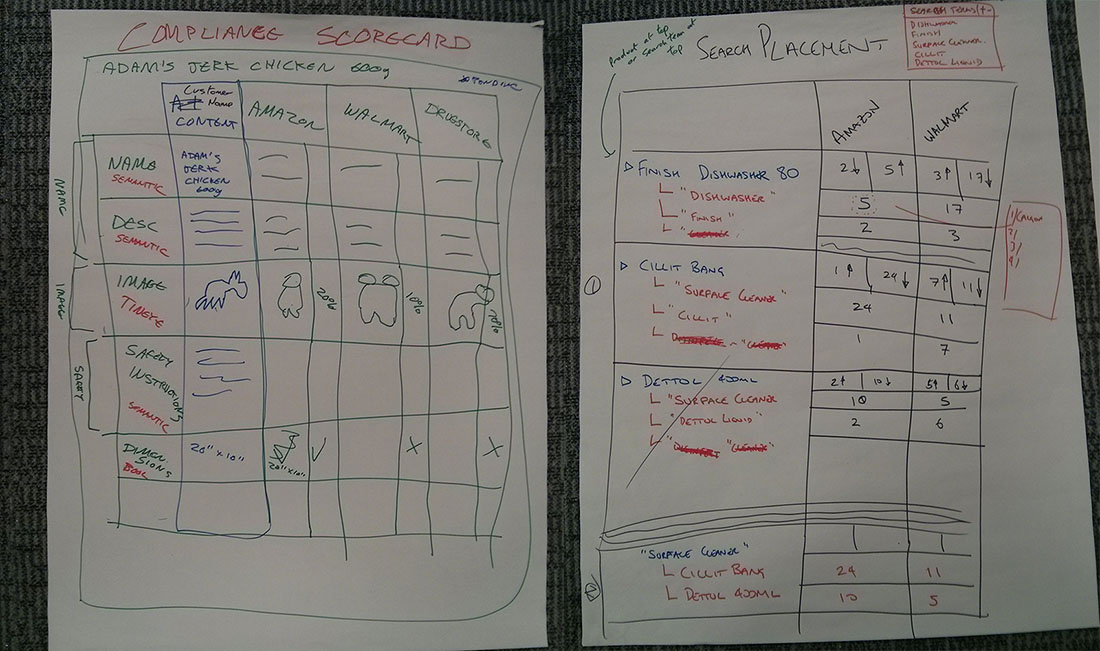 COMPLIANCE SCORECARD
ADAM'S JERK CHICKEN 600g
Customer
Name
CONTENT
AMAZON
WALMART
DRUGSTORE
NAME
NAME
SEMANTIC
ADAM'S
JERK
CHICKEN
600g
DESC
SEMANTIC
IMAGE
IMAGE
TINEYE
20%
10%
SAFETY
SAFETY
INSTRUCTIONS
SEMANTIC
DIMEN
SIONS
BOOL
20" x 10"
20" x 10"
✓
X
X
Product at top
or search term at
top
SEARCH PLACEMENT
SEARCH TERMS
DISHWASHER
FINISH
SURFACE CLEANER
CILLIT
DETTOL LIQUID
AMAZON
WALMART
FINISH DISHWASHER 80
2↓ 5↑ 3↑ 17↓
"DISHWASHER" 5 17
"FINISH" 2 3
1/
2/
3/
4/
1
CILLIT BANG 1↑ 24↓ 7↑ 11↓
"SURFACE CLEANER" 24 11
"CILLIT" 1 7
DETTOL 400ML 2↑ 10↓ 5↑ 6↓
"SURFACE CLEANER 10 5
"DETTOL LIQUID" 2 6
2
"SURFACE CLEANER"
CILLIT BANG 24 11
DETTOL 400ML 10 5